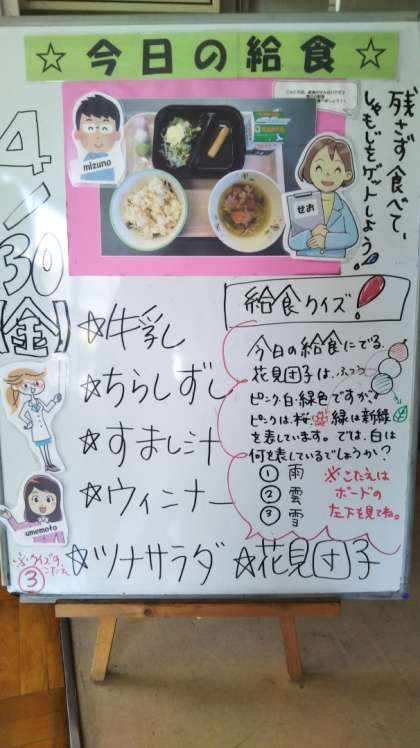 ☆今日の給食☆
残さず食べて、
しゃもじをゲットしよう
4/30(金)
mizuno
せお
☆牛乳
☆ちらしずし
☆すまし汁
☆ウィンナー
☆ツナサラダ ☆花見団子
給食クイズ
今日の給食にでる
花見団子は、ふつう
ピンク・白・緑色ですが、
ピンクは、桜、緑は新緑
を表しています。では、白は
何を表しているでしょうか?
① 雨
② 雲
③ 雪
※こたえは
ボードの
左下を見てね。
umemoto
クイズの
こたえ
③